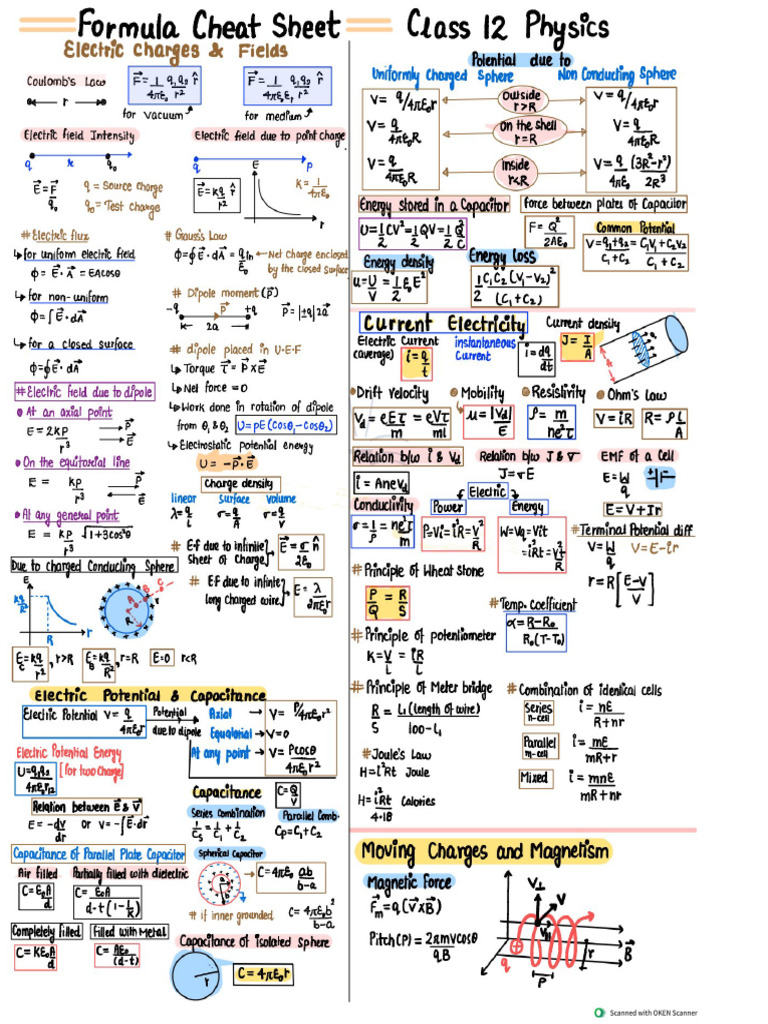 Formula Cheat Sheet
Class 12 Physics
Electric Charges & Fields
Coulomb's Law
r
F⃗ = 1/4πε₀ q₁q₂/r² r̂
for vacuum
F⃗ = 1/4πε₀εᵣ q₁q₂/r² r̂
for medium
Electric field Intensity
q r q₀
E⃗ = F⃗/q₀
q = Source charge
q₀ = Test charge
Electric field due to point charge
q P
E⃗ = kq/r² r̂
E
r
K = 1/4πε₀
# Electric flux
↳ for uniform electric field
Φ = E⃗·A⃗ = EAcosθ
↳ for non-uniform
Φ = ∫E⃗·dA⃗
↳ for a closed surface
Φ = ∮E⃗·dA⃗
# Gauss's Law
Φ = ∮E⃗·dA⃗ = qin/ε₀ ← Net charge enclosed
by the closed surface
# Dipole moment (p⃗)
-q P⃗ +q
2a
P⃗ = |±q|2a⃗
# dipole placed in U.E.F
↳ Torque τ⃗ = P⃗ × E⃗
↳ Net force = 0
↳ Work done in rotation of dipole
from θ₁ & θ₂ U = pE(cosθ₁-cosθ₂)
↳ Electrostatic potential energy
U = -P⃗·E⃗
# Electric field due to dipole
At an axial point
E = 2KP/r³
P⃗
E⃗
On the equitorial line
E = KP/r³
P⃗
E⃗
At any general point
E = KP/r³ √1+3cos²θ
Charge density
linear surface volume
λ = q/L σ = q/A σ = q/V
# E.f due to infinite
Sheet of Charge
E⃗ = σ/2ε₀ n̂
# E.f due to infinite
long charged wire
E = λ/2πε₀r
Due to charged Conducting Sphere
E
kq/R²
R
r
A B C
R
E_C = kq/r², r>R E_B = kq/R², r=R E=0 r<R
Electric Potential & Capacitance
Electric Potential V = q/4πε₀r
Potential
due to dipole
Axial → V = P/4πε₀r²
Equatorial → V=0
At any point → V = Pcosθ/4πε₀r²
Electric Potential Energy
U = q₁q₂/4πε₀r₁₂ [for two Charge]
Relation between E⃗ & V⃗
E = -dV/dr or V = -∫E⃗·dr⃗
Capacitance C = Q/V
Series Combination
1/Cs = 1/C₁ + 1/C₂
Parallel Comb.
Cp = C₁+C₂
Capacitance of Parallel Plate Capacitor
Air filled
C = ε₀A/d
Partially filled with dielectric
C = ε₀A/d-t(1-1/K)
Completely filled
C = Kε₀A/d
Filled with Metal
C = Aε₀/(d-t)
Spherical Capacitor
C = 4πε₀ ab/b-a
# if inner grounded C = 4πε₀b²/b-a
Capacitance of isolated Sphere
r
C = 4πε₀r
Potential due to
Uniformly Charged Sphere
Non Conducting Sphere
V = q/4πε₀r
Outside
r>R
V = q/4πε₀r
V = q/4πε₀R
On the shell
r=R
V = q/4πε₀R
V = q/4πε₀R
Inside
r<R
V = q/4πε₀ (3R²-r²)/2R³
Energy stored in a Capacitor
U = 1/2 CV² = 1/2 QV = 1/2 Q²/C
force between plates of Capacitor
F = Q²/2Aε₀
Common Potential
V = q₁+q₂/C₁+C₂ = C₁V₁+C₂V₂/C₁+C₂
Energy density
u = U/V = 1/2 ε₀E²
Energy loss
1/2 C₁C₂(V₁-V₂)²/(C₁+C₂)
Current Electricity
Electric Current
(average) i = q/t
instantaneous
Current i = dq/dt
Current density
J = I/A
Drift Velocity
Vd = eEτ/m = eVτ/ml
Mobility
μ = |Vd|/E
Resistivity
ρ = m/ne²τ
Ohm's Law
V = iR R = ρL/A
Relation b/w i & Vd
i = AneVd
Relation b/w J & σ
J = σE
EMF of a Cell
E = W/q
E = V+Ir
Conductivity
σ = 1/ρ = ne²τ/m
Electric
Power
P = Vi = i²R = V²/R
Energy
W = Vq = Vit
= i²Rt = V²t/R
# Terminal Potential diff
V = W/q V = E-ir
r = R[E-V/V]
# Principle of Wheat Stone
P/Q = R/S
# Temp. Coefficient
α = R-R₀/R₀(T-T₀)
# Principle of potentiometer
K = V/L = iR/L
# Principle of Meter bridge
R/S = L₁(length of wire)/100-L₁
# Combination of identical cells
Series
n-cell
i = nE/R+nr
Parallel
m-cell
i = mE/mR+r
Mixed
i = mnE/mR+nr
# Joule's Law
H = I²Rt Joule
H = i²Rt/4.18 Calories
Moving Charges and Magnetism
Magnetic Force
F⃗m = q(V⃗×B⃗)
Pitch(P) = 2πmvcosθ/qB
V⊥
V
V||
q
r
B⃗
P
Scanned with OKEN Scanner